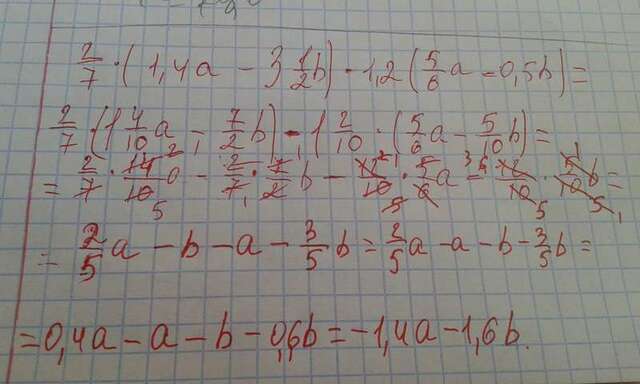 2/7 · (1,4a - 3 1/2 b) - 1,2 (5/6 a - 0,5b) =
2/7 (1 4/10 a - 7/2 b) - 1 2/10 · (5/6 a - 5/10 b) =
= 2/7 · 14/10 a - 2/7 · 7/2 b - 12/10 · 5/6 a - 12/10 · 5/10 b =
= 2/5 a - b - a - 3/5 b = 2/5 a - a - b - 3/5 b =
= 0,4a - a - b - 0,6b = -1,4a - 1,6b.